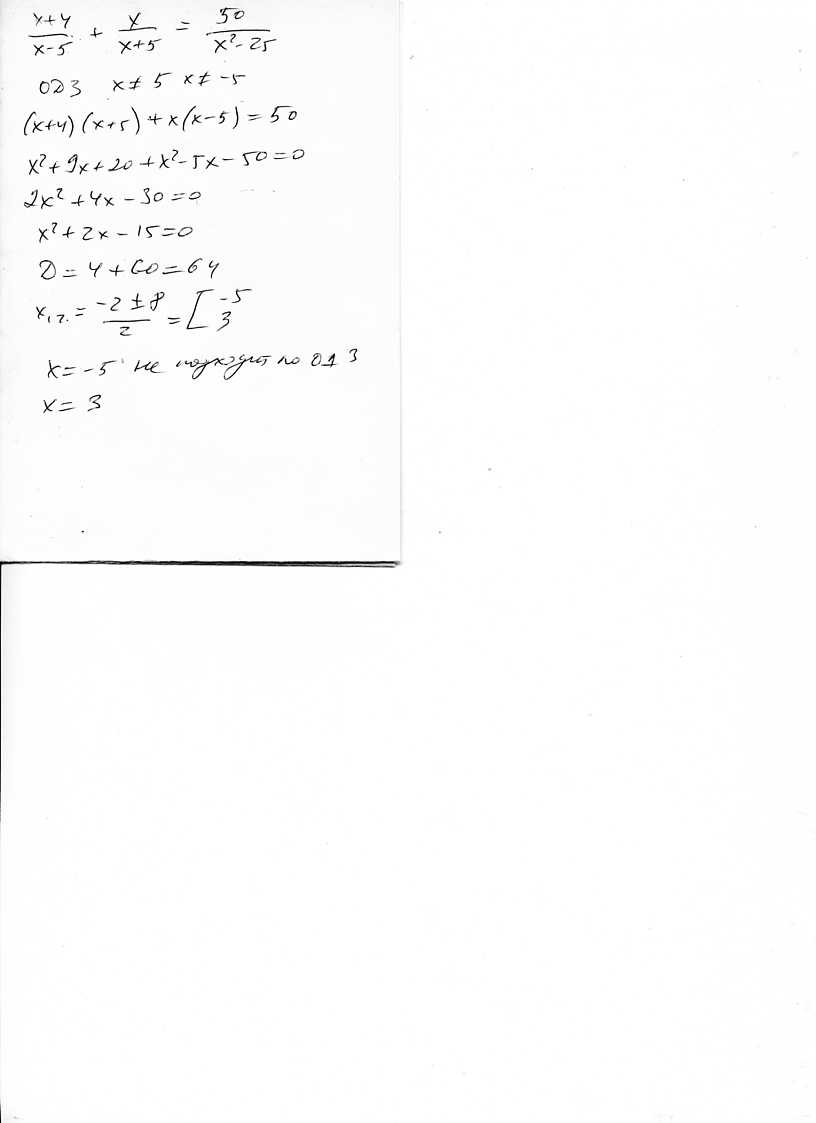 (x+4)/(x-5) + x/(x+5) = 50/(x²-25)
ОДЗ x≠5 x≠-5
(x+4)(x+5)+x(x-5)=50
x²+9x+20+x²-5x-50=0
2x²+4x-30=0
x²+2x-15=0
D=4+60=64
x₁,₂.=(-2±8)/2=[-5 3
x=-5 не подходит по ОДЗ
x=3